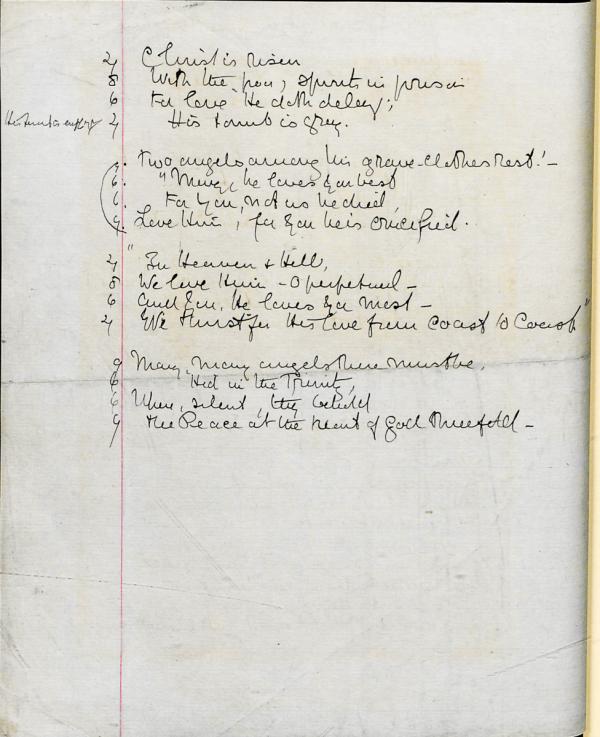 4 Christ is risen
8 With the poor, spirits in prison
6 For love He doth delay;
His tomb is empty 4 His tomb is grey.
9. Two angels among his grave-clothes rest! –
6. "Mary, he loves you best
6. For you, not us he died,
9. Love Him, for you he is crucified.
4 "In Heaven & Hell,
8 We love Him – O perpetual –
6 And you, He loves you most –
4 We thirst for His love from Coast to Coast"
9 Many, many angels there must be,
6 Hid in the Trinity,
6 When, silent, they behold
9 The Peace at the heart of God Threefold –